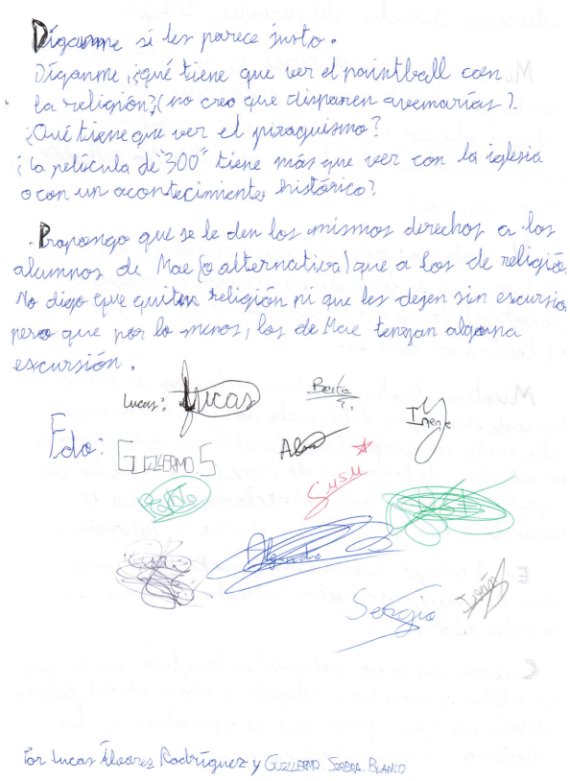 Díganme si les parece justo.
Díganme, ¿qué tiene que ver el paintball con
la religión? (no creo que disparen avemarías).
¿Qué tiene que ver el piragüismo?
¿La película de "300" tiene más que ver con la iglesia
o con un acontecimiento histórico?
Propongo que se le den los mismos derechos a los
alumnos de Mae (o alternativa) que a los de religión.
No digo que quiten religión ni que les dejen sin escursio
pero que por lo menos, los de Mae tengan alguna
escursión.
Lucas: Lucas
Berta
Irene
Fdo:
GUILLERMO.S
Susu
Alejandro
Sergio
Por Lucas Álvarez Rodríguez y GUILLERMO. SOBERA. BLANCO